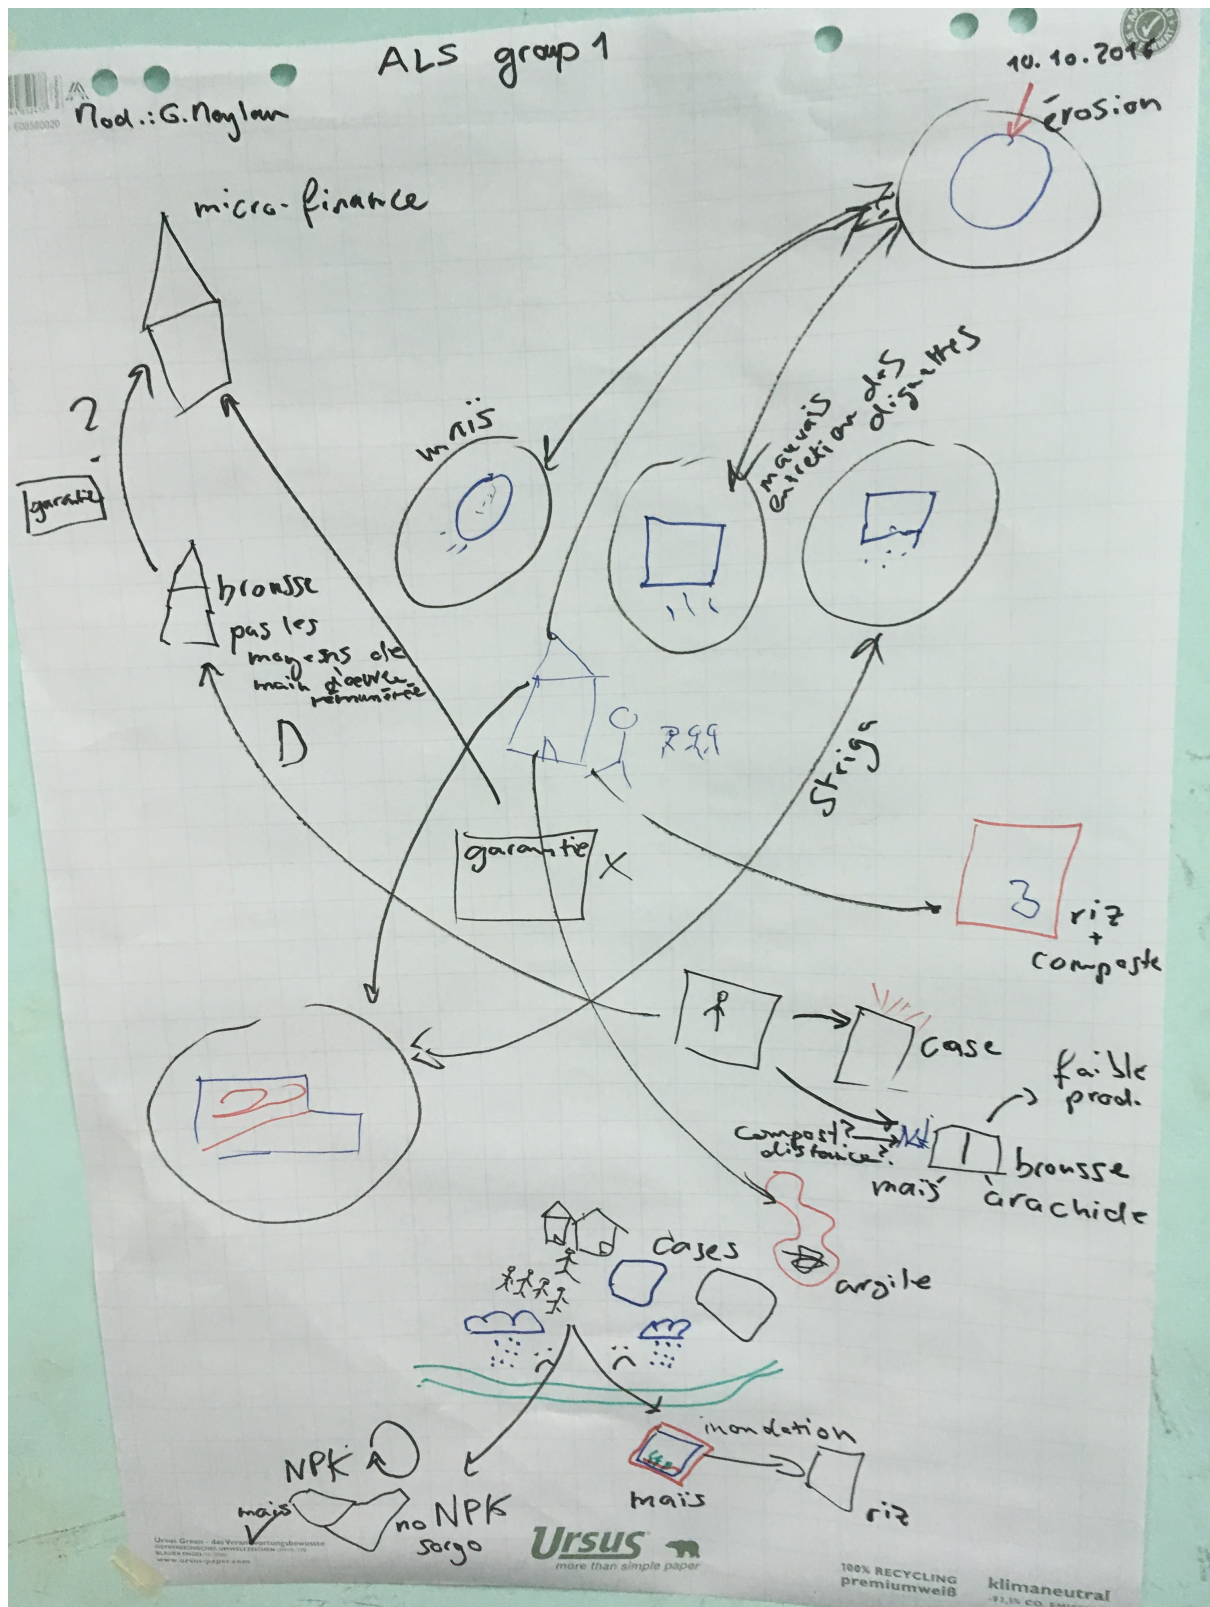 ALS group 1
10.10.2016
Mod.: G.
érosion
micro-finance
?
garantie
maïs
mauvais
entretien des
diguettes
brousse
pas les
moyens de
main d'œuvre
rémunérée
D
Striga
garantie X
3
riz
+
composte
case
faible
prod.
compost?
distance?
1
brousse
maïs
arachide
cases
argile
inondation
NPK
maïs
no NPK
sorgo
mais
riz
Ursus Green - das Verantwortungsbewusste
www.ursus-paper.com
Ursus
more than simple paper
100% RECYCLING
premiumweiß
klimaneutral